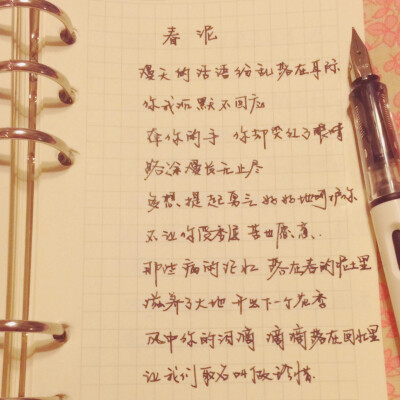 春泥
漫天的话语纷乱落在耳际
你我沉默不回应
牵你的手 你却哭红了眼睛
路途漫长无止尽
多想提起勇气 好好地呵护你
不让你受委屈 苦也愿意
那些痛的记忆 落在春的泥土里
滋养了大地 开出下一个花季
风中你的泪滴 滴滴落在回忆里
让我们取名叫做珍惜